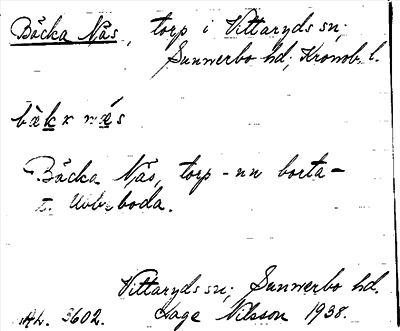 Bäcka Näs, torp i Vittaryds sn;
Sunnerbo hd; Kronob. l.
Bäcka Näs, torp - nu borta -
boda.
Vittaryds sn; Sunnerbo hd.
Ah. 3602. Sage Nilsson 1938.